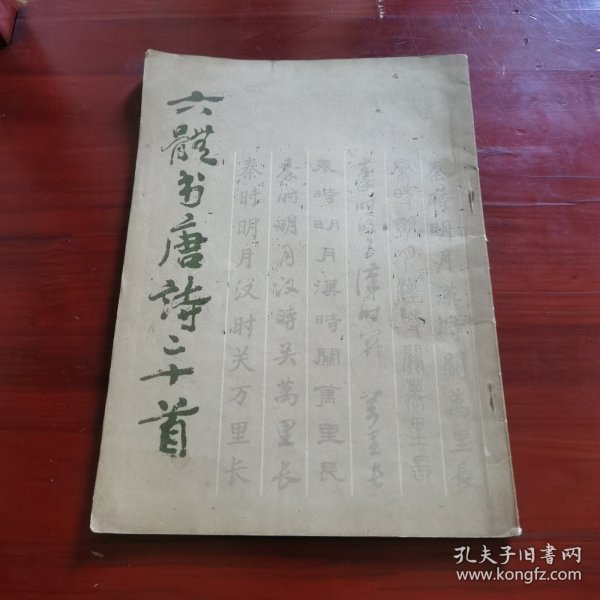 六體书唐詩二十首
秦時明月漢時關萬里長
秦時明月漢時關萬里長
秦時明月漢時關萬里長
秦时明月汉時关萬里長
秦时明月汉时关万里长
孔夫子旧书网
www.kongfz.com